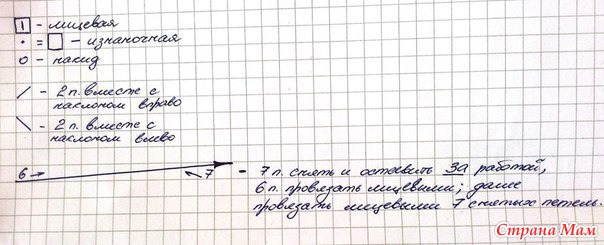 | - лицевая
• = □ - изнаночная
о - накид
/ - 2 п. вместе с
наклоном вправо
\ - 2 п. вместе с
наклоном влево
6 → ← 7 - 7 п. снять и оставить за работой,
6 п. провязать лицевыми; далее
провязать лицевыми 7 снятых петель.
Страна Мам